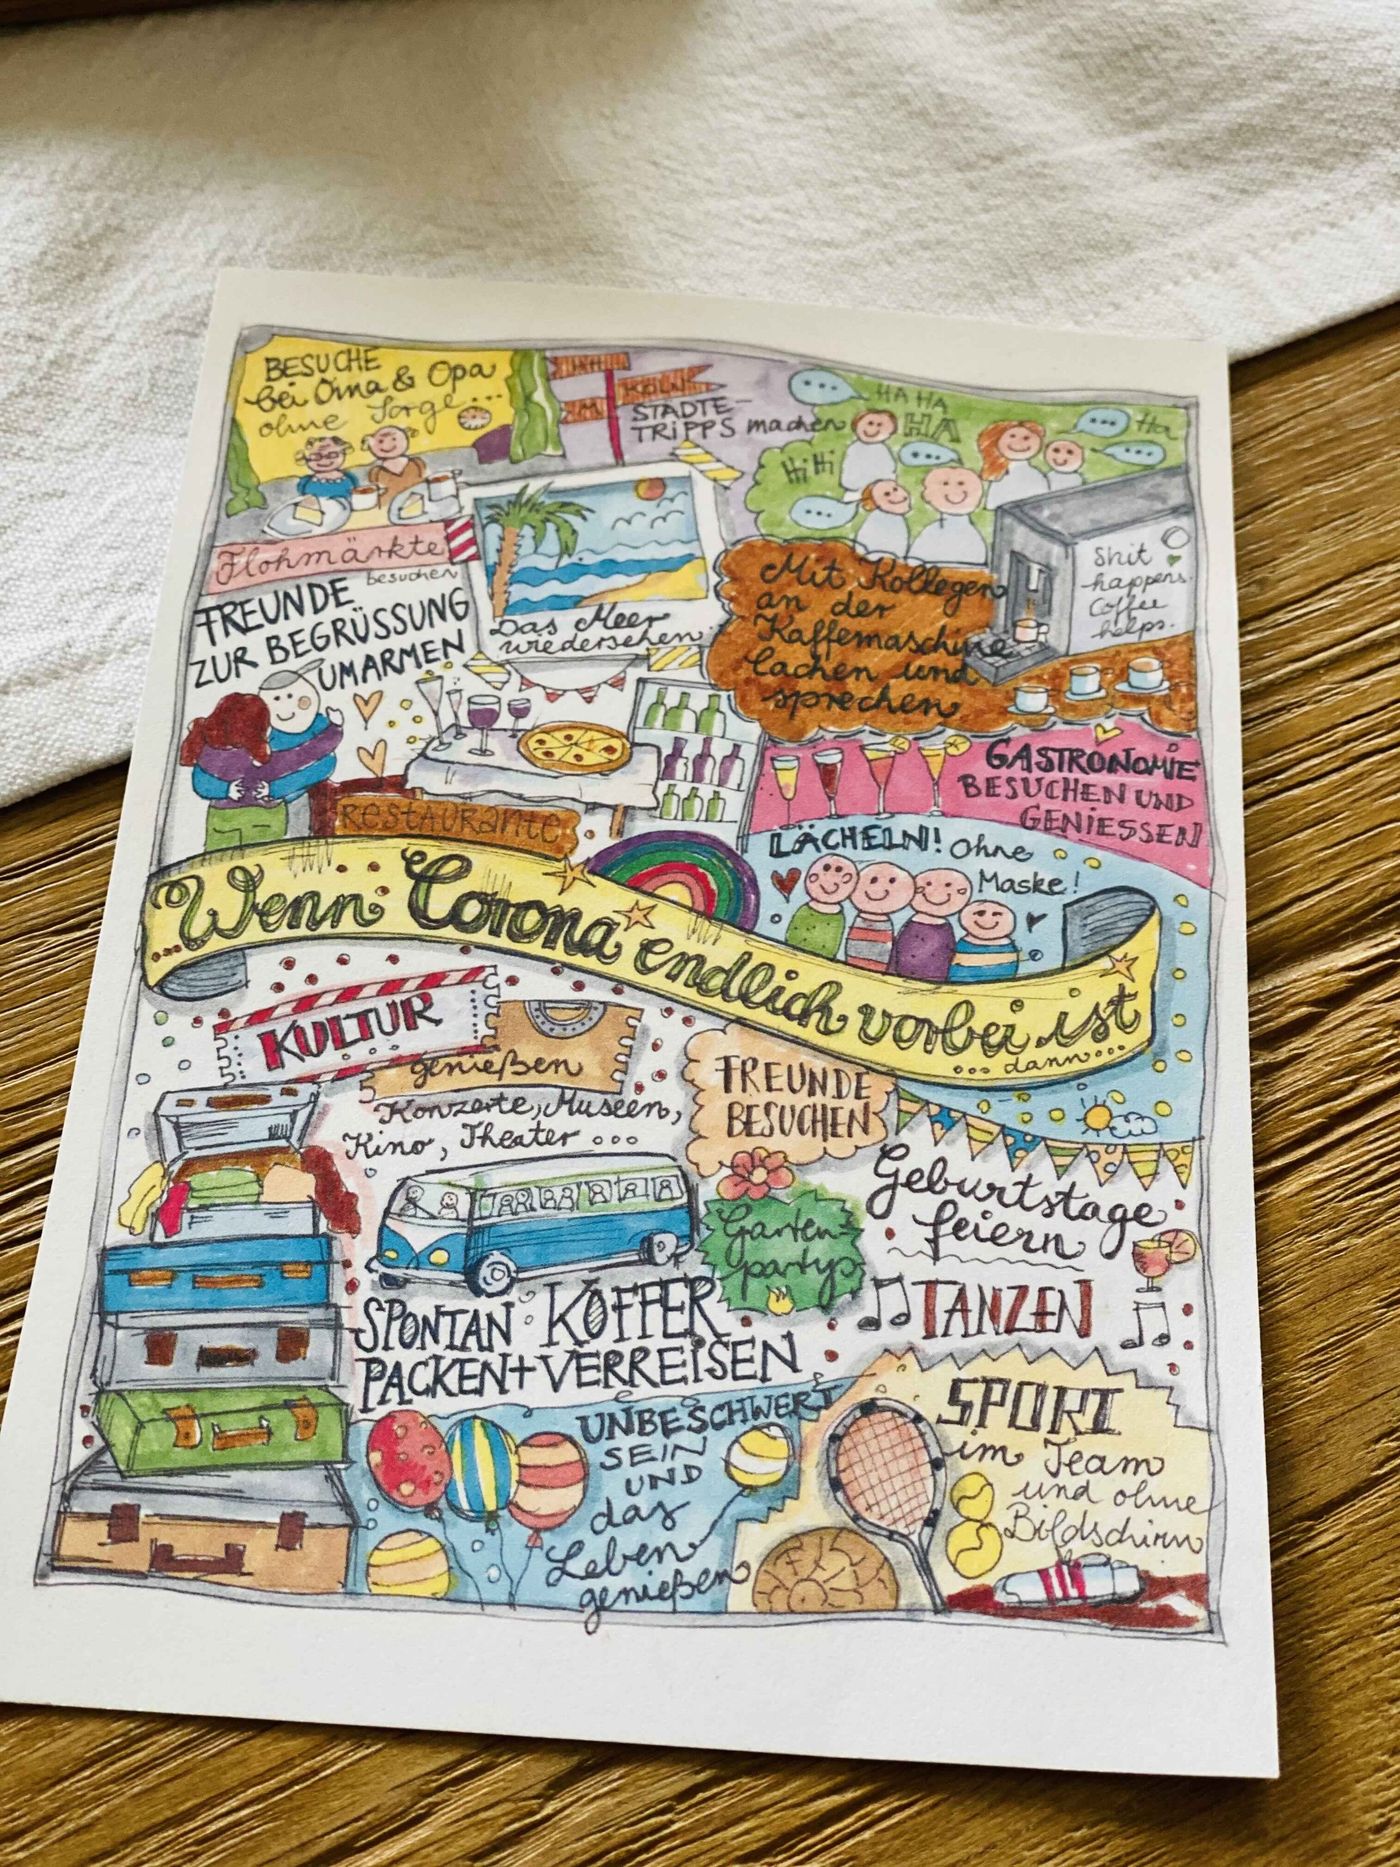 BESUCHE
bei Oma & Opa
ohne Sorge...
KÖLN
STÄDTE-
TRIPPS machen
HA HA
HA
Ha
HiHi
Flohmärkte
besuchen
FREUNDE
ZUR BEGRÜSSUNG
UMARMEN
Das Meer
wiedersehen.
Mit Kollegen
an der
Kaffemaschine
lachen und
sprechen
Shit
happens.
Coffee
helps.
RESTAURANTE
GASTRONOMIE
BESUCHEN UND
GENIESSEN
LÄCHELN! Ohne
Maske!
...Wenn Corona endlich vorbei ist
... dann...
KULTUR
genießen
Konzerte, Museen,
Kino, Theater ...
FREUNDE
BESUCHEN
Geburtstage
feiern
Garten-
partys
TANZEN
SPONTAN KOFFER
PACKEN + VERREISEN
UNBESCHWERT
SEIN
UND
das
Leben
genießen
SPORT
im Team
und ohne
Bildschirm